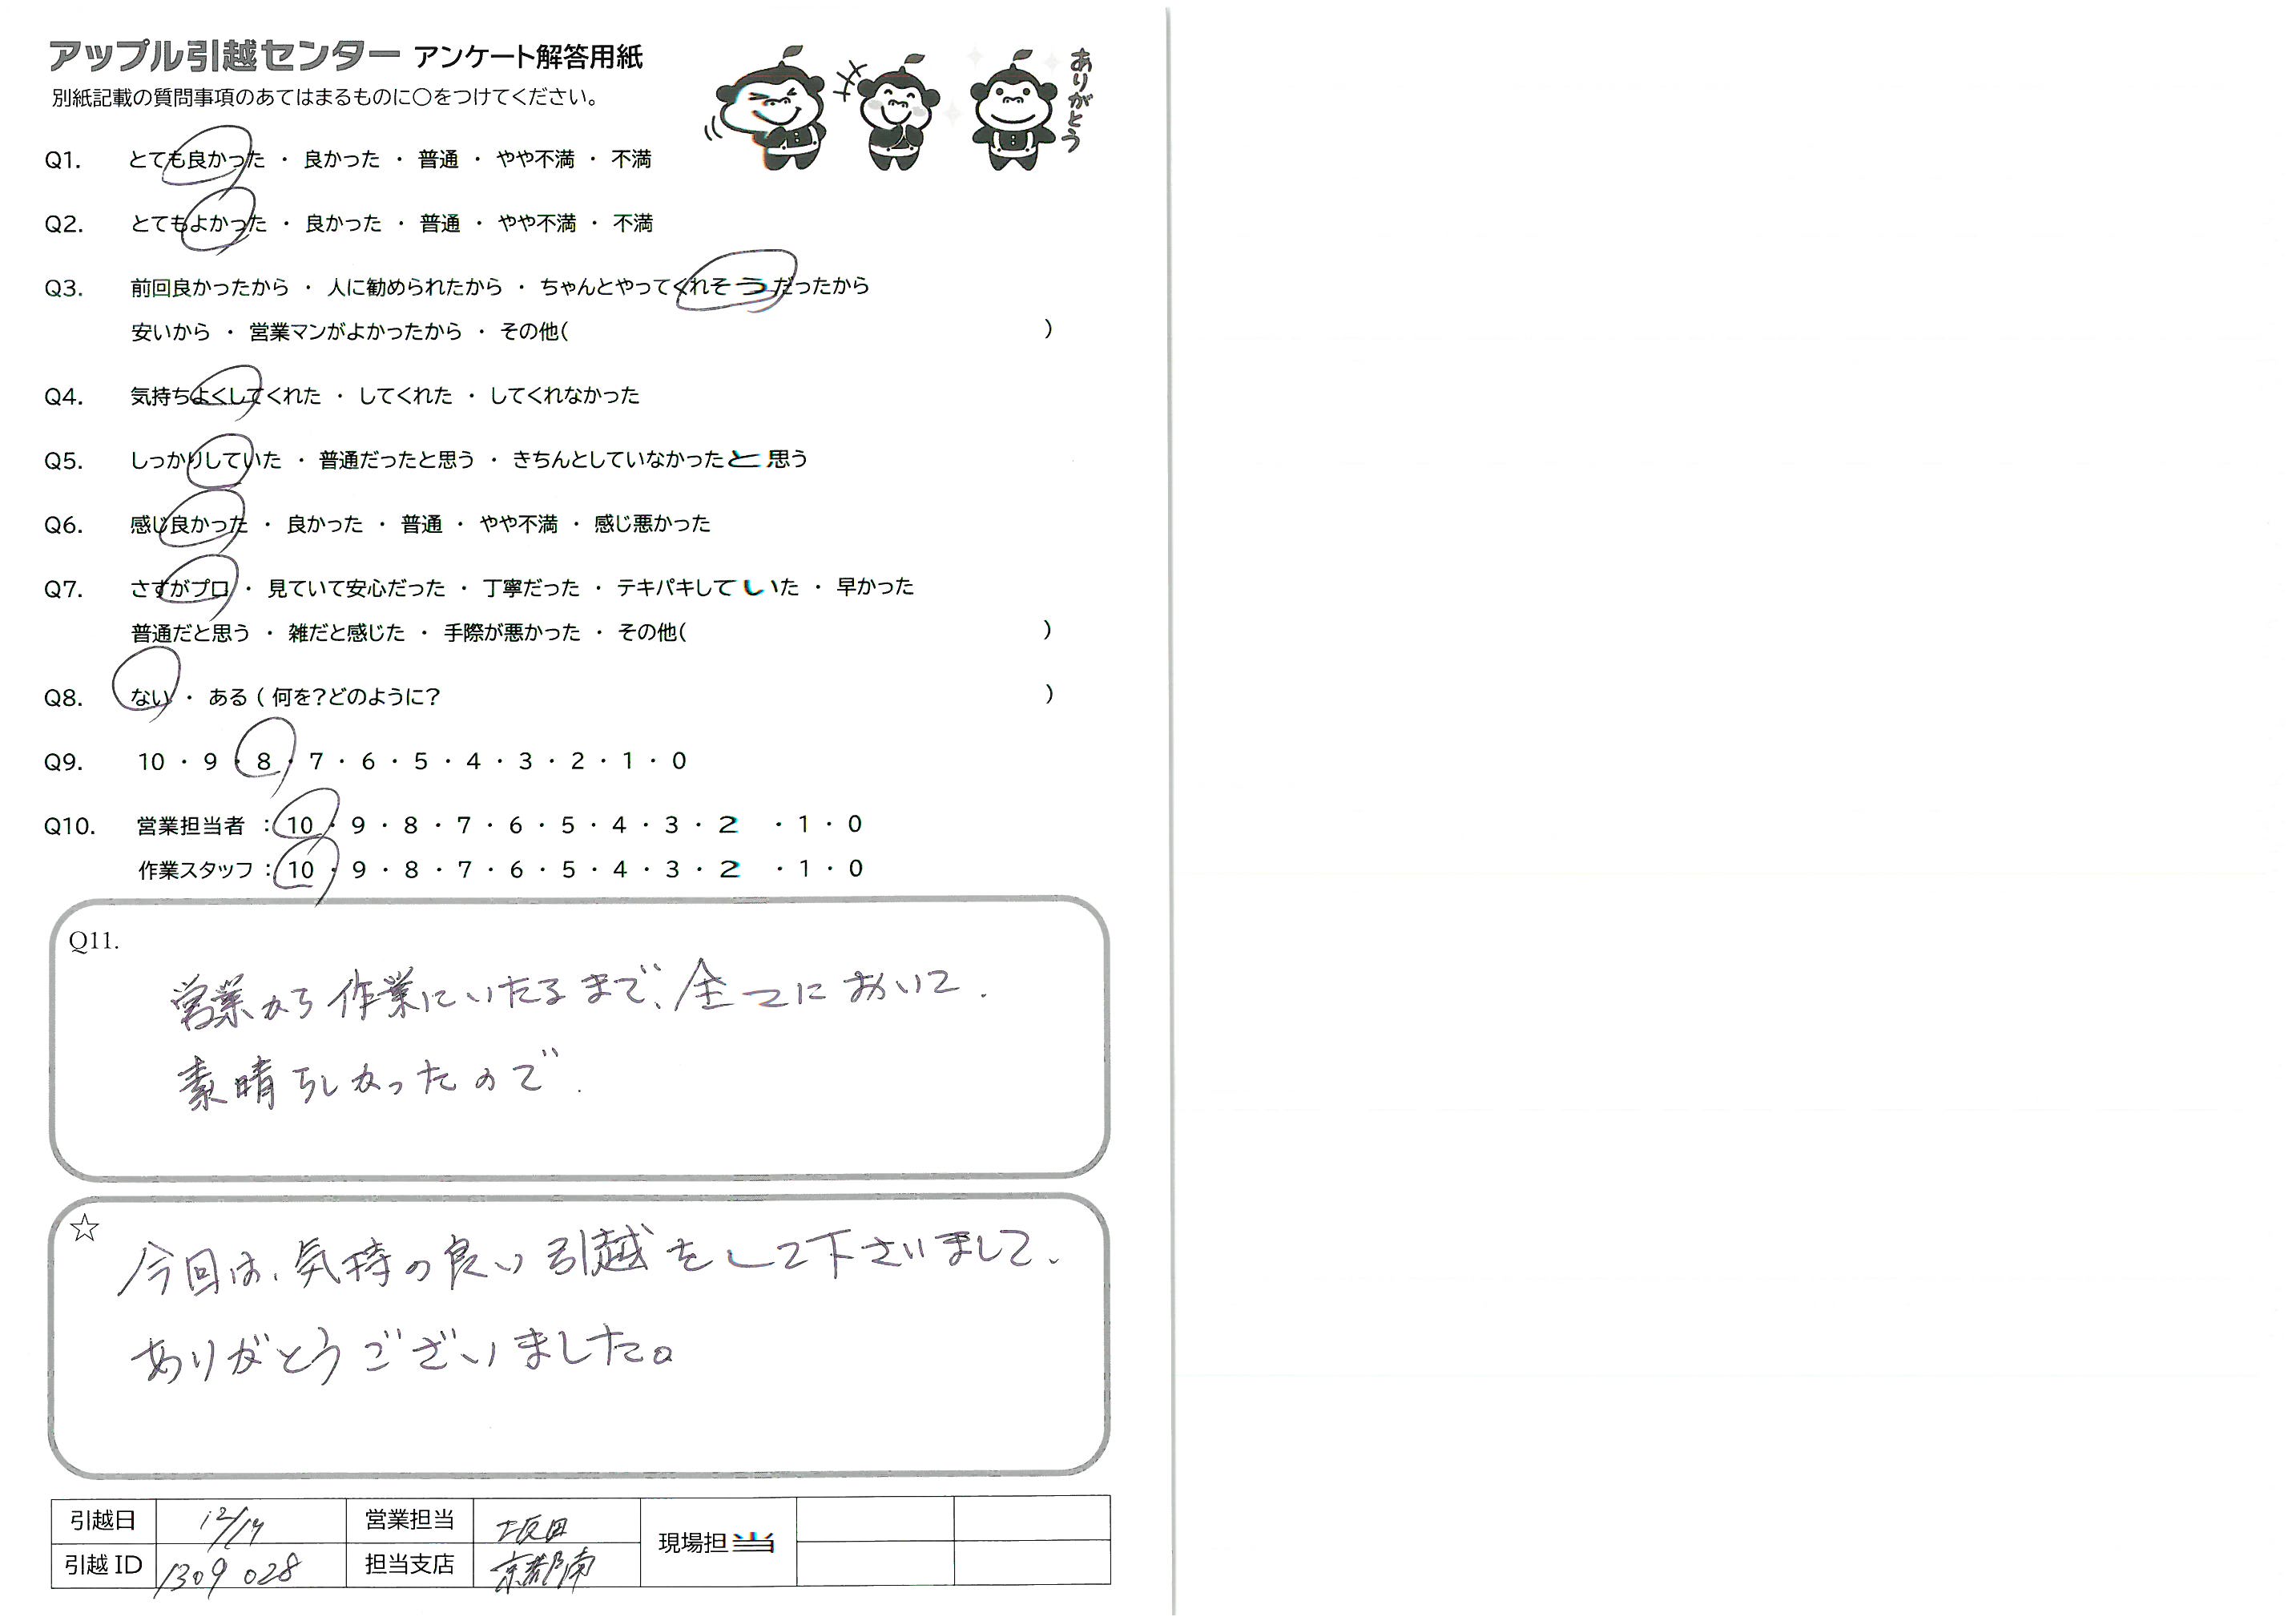 アップル引越センター アンケート解答用紙
別紙記載の質問事項のあてはまるものに〇をつけてください。
ありがとう
Q1. とても良かった ・ 良かった ・ 普通 ・ やや不満 ・ 不満
Q2. とてもよかった ・ 良かった ・ 普通 ・ やや不満 ・ 不満
Q3. 前回良かったから ・ 人に勧められたから ・ ちゃんとやってくれそうだったから
安いから ・ 営業マンがよかったから ・ その他( )
Q4. 気持ちよくしてくれた ・ してくれた ・ してくれなかった
Q5. しっかりしていた ・ 普通だったと思う ・ きちんとしていなかったと思う
Q6. 感じ良かった ・ 良かった ・ 普通 ・ やや不満 ・ 感じ悪かった
Q7. さすがプロ ・ 見ていて安心だった ・ 丁寧だった ・ テキパキしていた ・ 早かった
普通だと思う ・ 雑だと感じた ・ 手際が悪かった ・ その他( )
Q8. ない ・ ある ( 何を?どのように? )
Q9. 10 ・ 9 ・ 8 ・ 7 ・ 6 ・ 5 ・ 4 ・ 3 ・ 2 ・ 1 ・ 0
Q10. 営業担当者 : 10 ・ 9 ・ 8 ・ 7 ・ 6 ・ 5 ・ 4 ・ 3 ・ 2 ・ 1 ・ 0
作業スタッフ : 10 ・ 9 ・ 8 ・ 7 ・ 6 ・ 5 ・ 4 ・ 3 ・ 2 ・ 1 ・ 0
Q11.
営業から作業にいたるまで、全てにおいて.
素晴らしかったので.
☆
今回は、気持の良い引越をして下さいまして、
ありがとうございました。
引越日 営業担当 坂田 現場担当
引越 ID 1309 028 担当支店 京都南